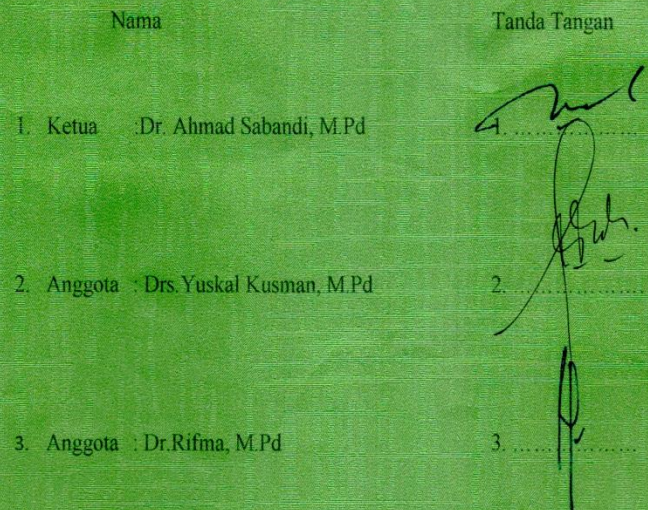 Nama Tanda Tangan
1. Ketua :Dr. Ahmad Sabandi, M.Pd 1. ....................
2. Anggota : Drs.Yuskal Kusman, M.Pd 2. ....................
3. Anggota : Dr.Rifma, M.Pd 3. ....................